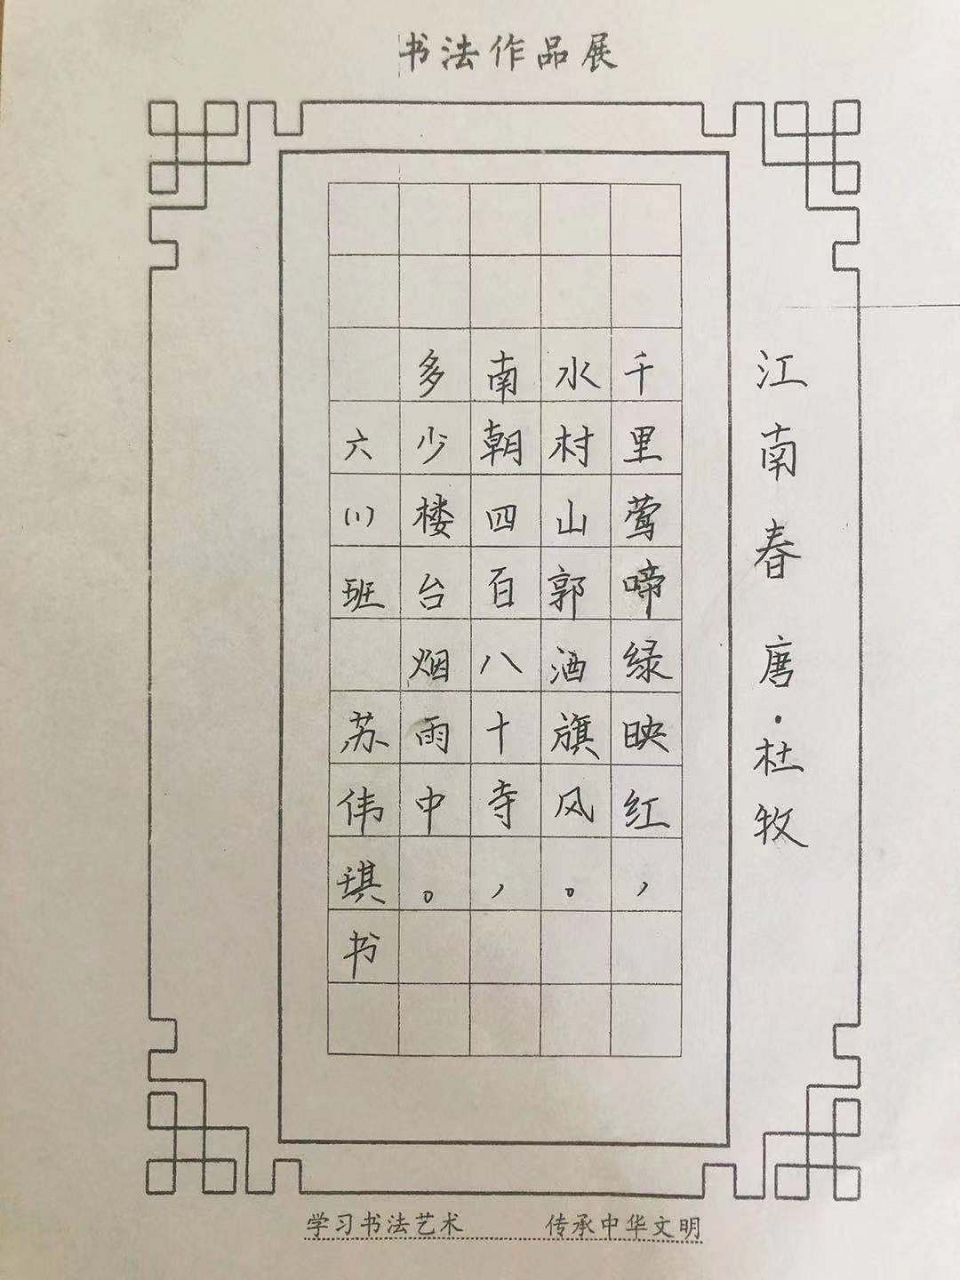 书法作品展
江南春 唐·杜牧
千里莺啼绿映红，
水村山郭酒旗风。
南朝四百八十寺，
多少楼台烟雨中。
六（1）班 苏伟琪书
学习书法艺术 传承中华文明